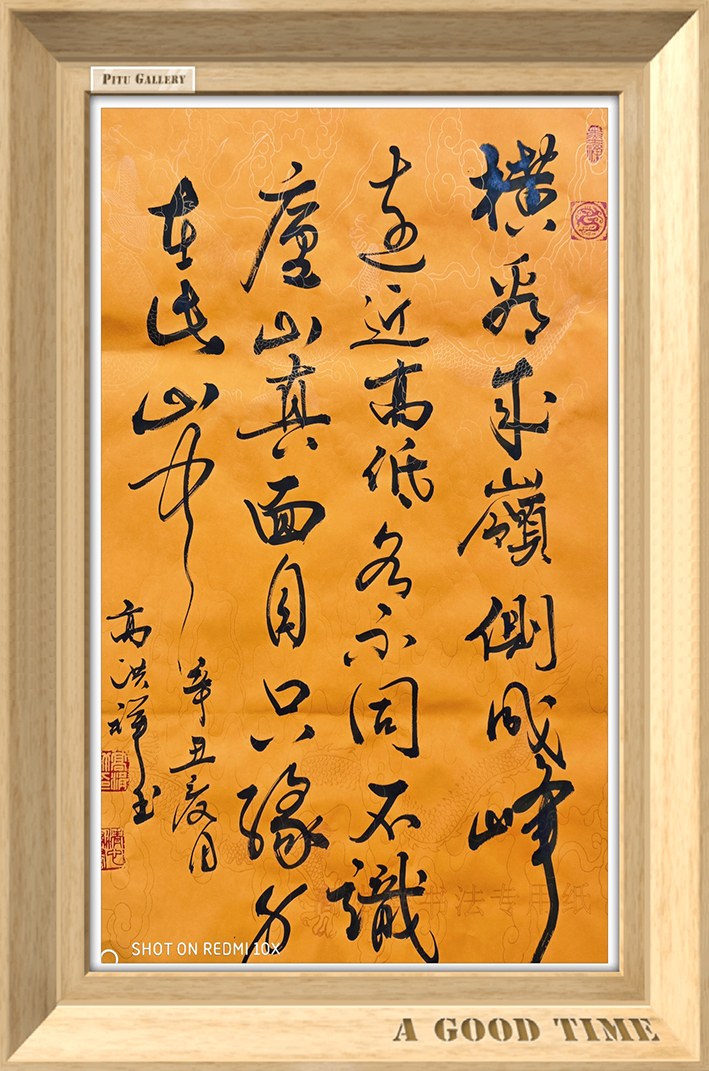 PITU GALLERY
横看成嶺側成峰
遠近高低各不同不識
廬山真面目只緣身
在此山中
辛丑夏月
高洪祥书
书法专用纸
SHOT ON REDMI 10X
A GOOD TIME